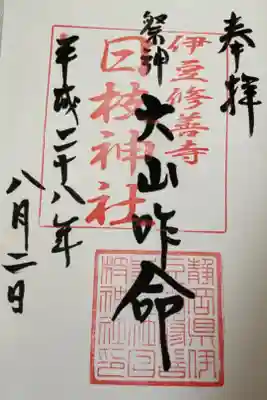 奉拝
伊豆修善寺
祭神 大山咋命
日枝神社
平成二十八年
八月二日